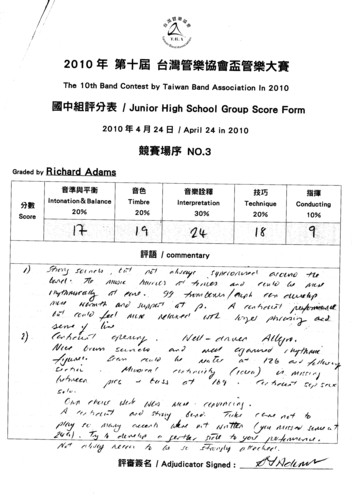 台灣管樂協會
T.B.A
2010 年 第十屆 台灣管樂協會盃管樂大賽
The 10th Band Contest by Taiwan Band Association In 2010
國中組評分表 / Junior High School Group Score Form
2010 年 4 月 24 日 / April 24 in 2010
競賽場序 NO.3
Graded by Richard Adams
分數 Score
音準與平衡 Intonation＆Balance 20%
音色 Timbre 20%
音樂詮釋 Interpretation 30%
技巧 Technique 20%
指揮 Conducting 10%
17 19 24 18 9
評語 / commentary
1) Strong sounds, but not always synchronised around the
band. The music hurries at times and could be more
rhythmically at one. can develop
more warmth and support at p. A confident performance
but could feel more relaxed with longer phrasing and
sense of line
2) Confident opening. Well-driven Allegro.
Nice drum sounds and well organised rhythmic
figures. at 126 and following
section. Musical continuity is missing
between at 169. Confident
solo.
A confident and strong band. Take care not to
play so many accents when not written (you missed some at
). Try to develop a gentler side to your performance.
Not always needs to be so strongly attacked.
評審簽名 / Adjudicator Signed :